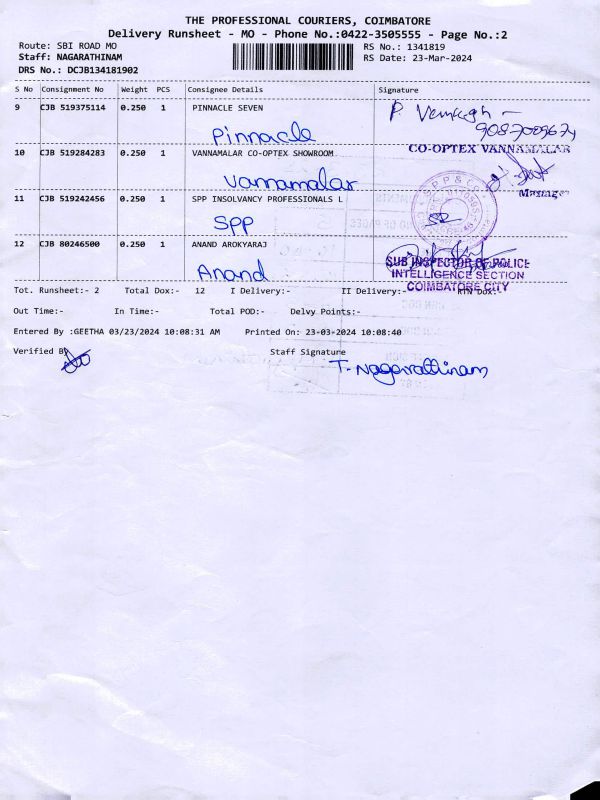 THE PROFESSIONAL COURIERS, COIMBATORE
Delivery Runsheet - MO - Phone No.:0422-3505555 - Page No.:2
Route: SBI ROAD MO
RS No.: 1341819
Staff: NAGARATHINAM
RS Date: 23-Mar-2024
DRS No.: DCJB134181902
S No Consignment No Weight PCS Consignee Details Signature
9 CJB 519375114 0.250 1 PINNACLE SEVEN
Pinnacle
10 CJB 519284283 0.250 1 VANNAMALAR CO-OPTEX SHOWROOM
CO-OPTEX VANNAMALAR
Vannamalar
Manager
11 CJB 519242456 0.250 1 SPP INSOLVANCY PROFESSIONALS L
SPP
12 CJB 80246500 0.250 1 ANAND AROKYARAJ
Anand
SUB INSPECTOR OF POLICE
INTELLIGENCE SECTION
COIMBATORE CITY
Tot. Runsheet:- 2 Total Dox:- 12 I Delivery:- II Delivery:- RTN Dox:-
Out Time:- In Time:- Total POD:- Delvy Points:-
Entered By :GEETHA 03/23/2024 10:08:31 AM Printed On: 23-03-2024 10:08:40
Verified By
Staff Signature
T. Nagarathinam